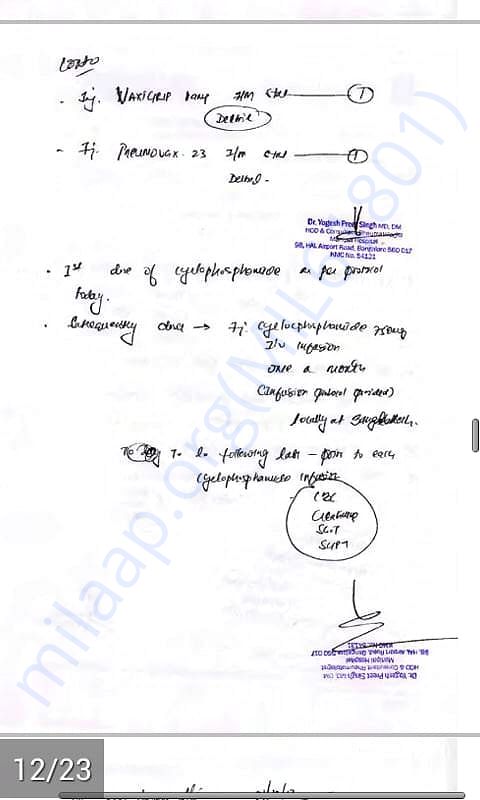 - Inj. VAXIGRIP I/M stat 1
- Ij. PNEUMOVAX-23 I/M stat 1
Dr. Yogesh Preet Singh MD, DM
HOD & Consultant Rheumatologist
Manipal Hospital
98, HAL Airport Road, Bangalore 560 017
KMC No. 54121
- Ist dose of cyclophosphamide as per protocol
today.
- Subsequently → Ij. cyclophosphamide
I/V infusion
once a month
(Infusion protocol provided)
locally at Bangladesh.
following labs – prior to each
cyclophosphamide infusion
CBC
Creatinine
SGOT
SGPT
Dr. Yogesh Preet Singh MD, DM
HOD & Consultant Rheumatologist
Manipal Hospital
98, HAL Airport Road, Bangalore 560 017
KMC No. 54121
milaap.org(MIL6801)
12/23